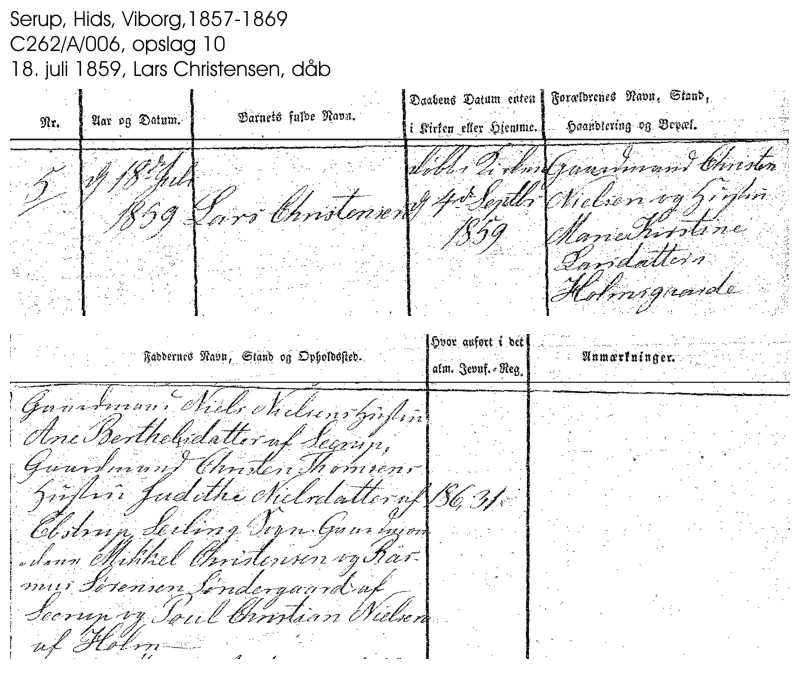 Serup, Hids, Viborg,1857-1869
C262/A/006, opslag 10
18. juli 1859, Lars Christensen, dåb
Nr.
Aar og Datum.
Barnets fulde Navn.
Daabens Datum enten
i Kirken eller Hjemme.
Forældrenes Navn, Stand,
Haandtering og Bopæl.
5
18de Juli
1859
Lars Christensen
Kirken
4de Septbr
1859
Gaardmand Christen
Nielsen og Hustru
Marie Kirstine
Larsdatter
Holmsgaarde
Faddernes Navn, Stand og Opholdssted.
Hvor anført i det
alm. Jevnf.-Reg.
Anmærkninger.
Gaardmand Niels Nielsens Hustru
Ane Berthelsdatter af Seerup,
Gaardmand Christen Thomsens
Hustru Judithe Nielsdatter af
Ebstrup Seiling Sogn Gaardmæn-
dene Mikkel Christensen og Ras-
mus Sørensen Søndergaard af
Seerup og Poul Christian Nielsen
af Holm
186, 31